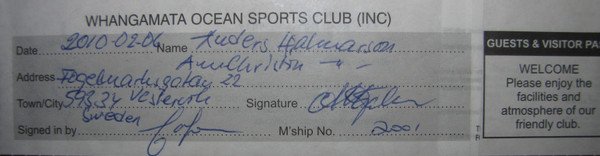 WHANGAMATA OCEAN SPORTS CLUB (INC)
Date 2010-02-06 Name Anders Halmarson
AnnChristin - " -
Address 22
Town/City 593 34 Västervik Signature
Sweden
Signed in by M'ship No. 2001
GUESTS & VISITOR PA
WELCOME
Please enjoy the
facilities and
atmosphere of our
friendly club.